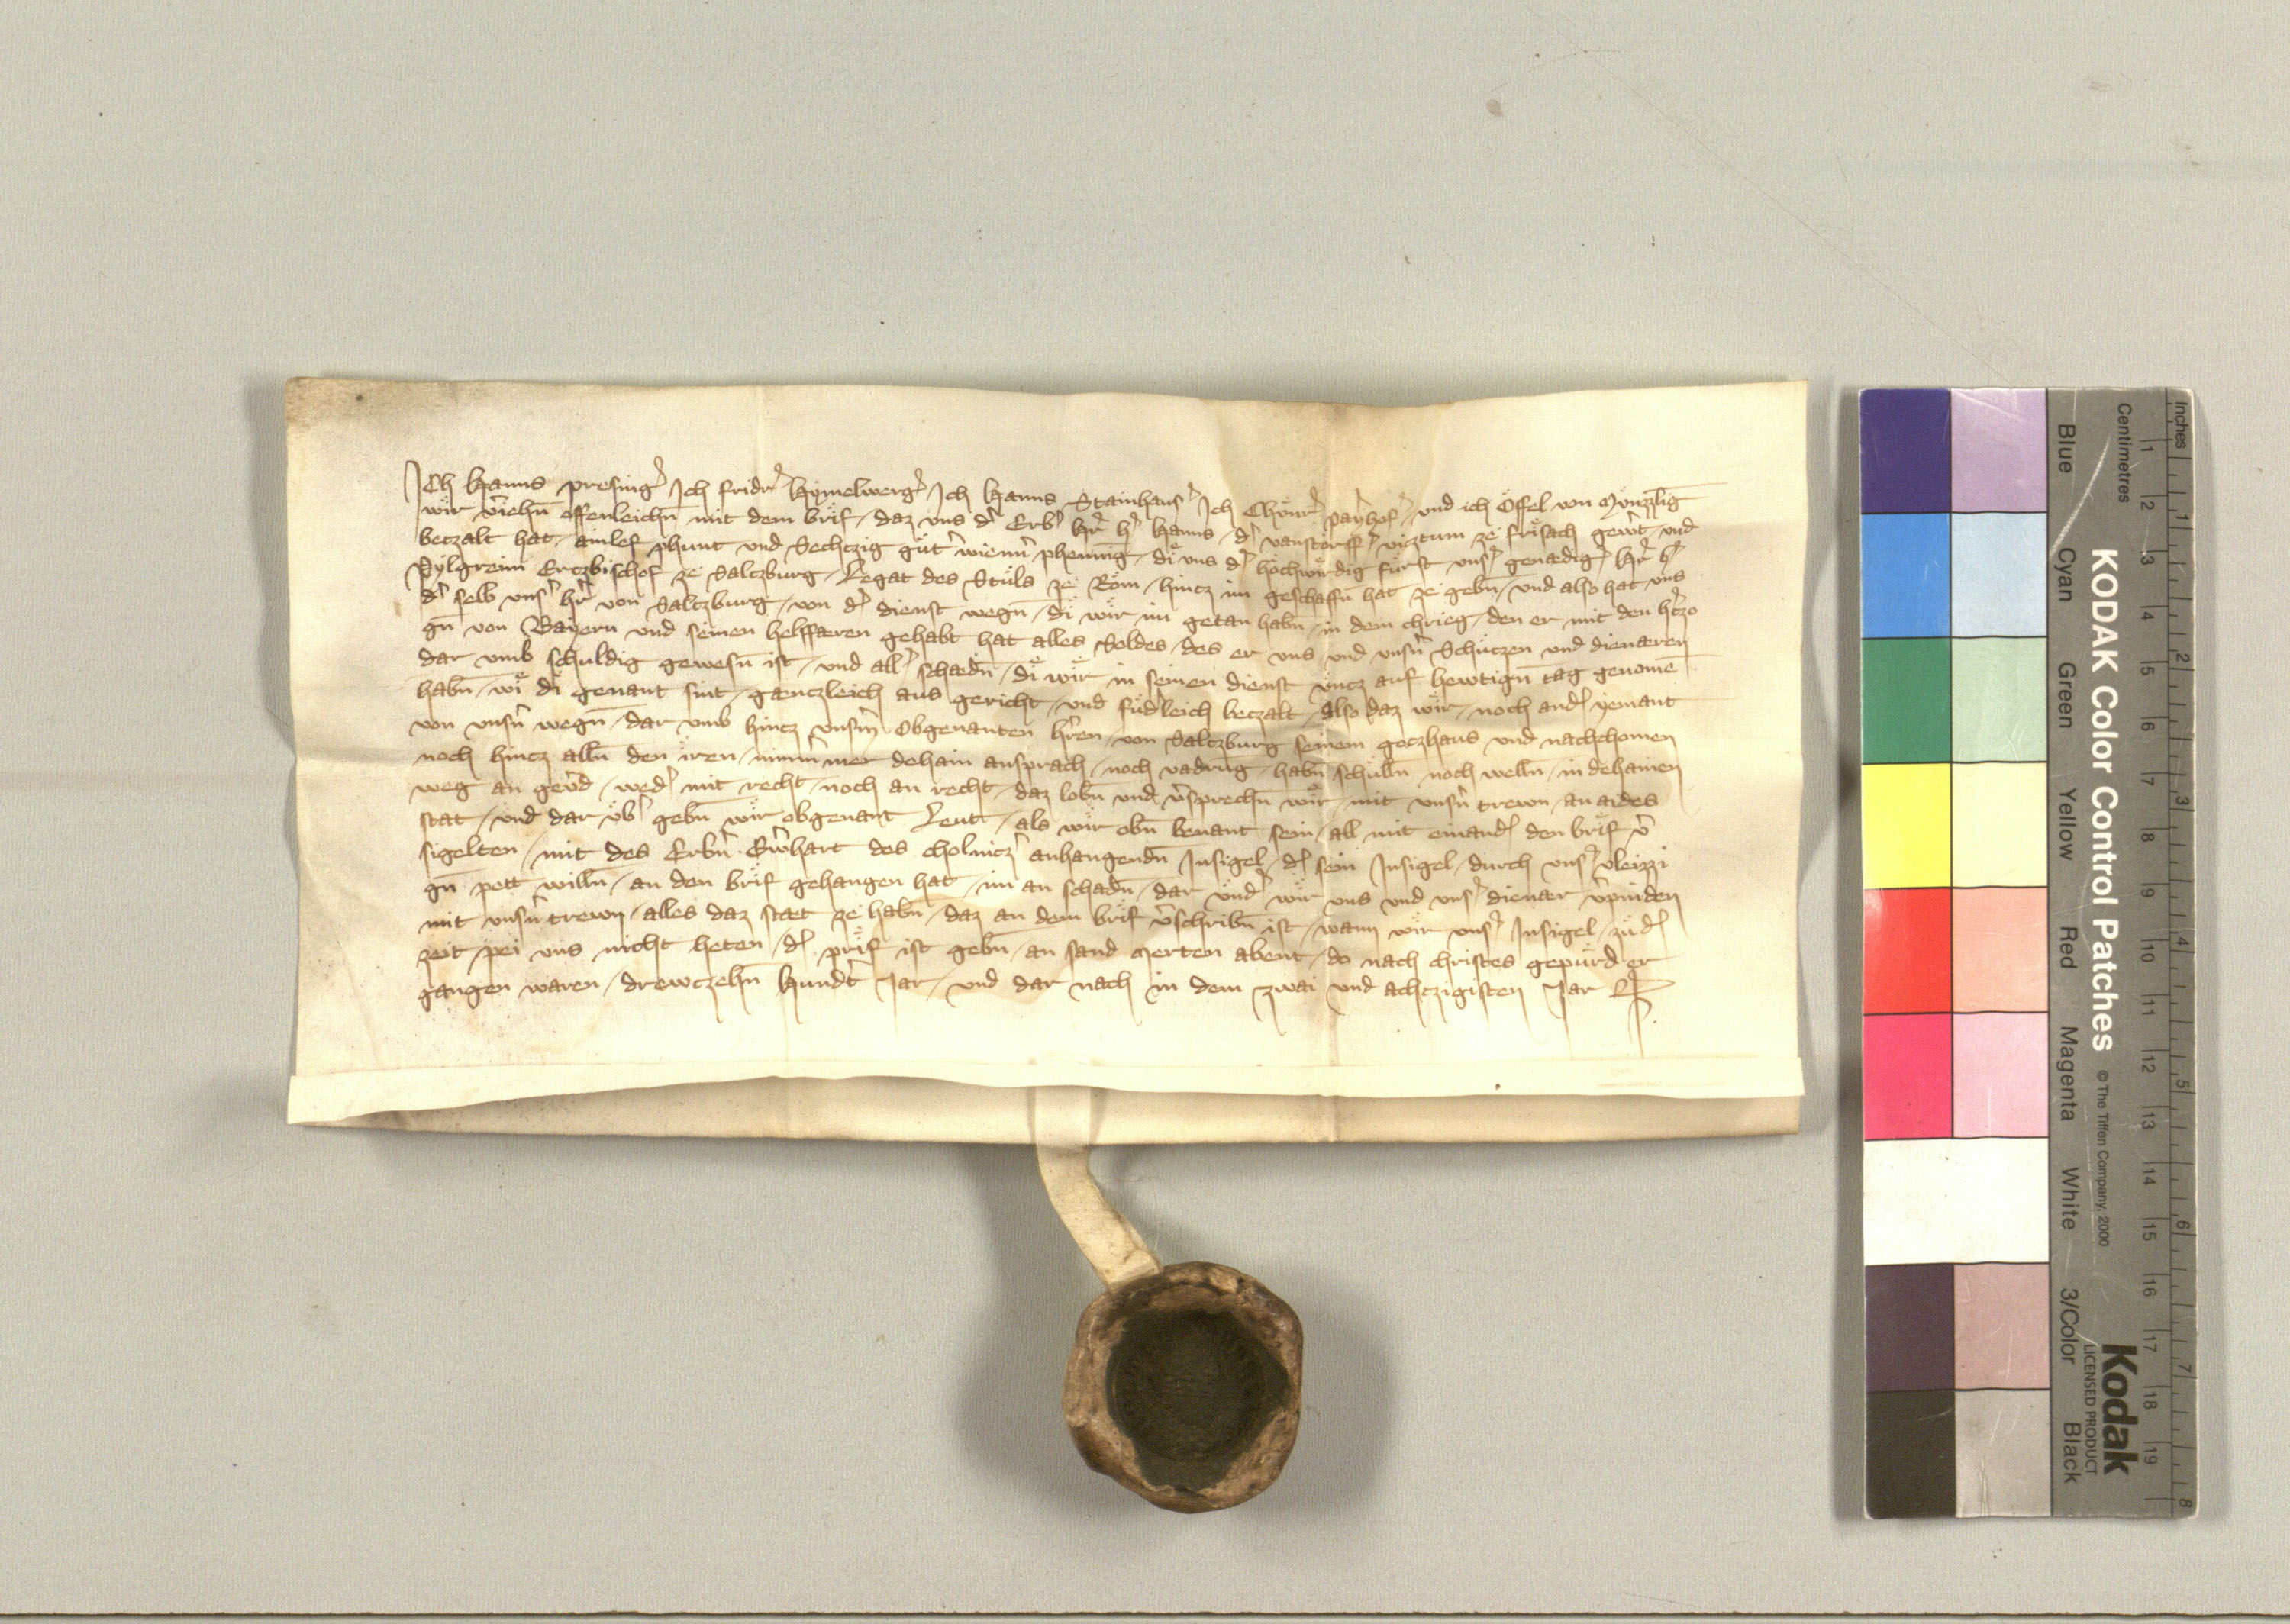 Ich Hanns presing͛ Ich fridr͛ Hymelwerg͛ Ich Hanns Stainhaus͛ Ich Chůnr͛ payrhof͛ und ich Öffel von
wir v͛iehn̄ offenleichn̄ mit dem brif / daz uns d͛ Erb͛ h͛r h͛ Hanns d͛ vanstorff͛ viztum ze frisach gew͛t / und
betzalt hat / ainlef phunt und Sechtzig gůt͛ wienn͛ phennig / di uns d͛ hochwirdig fürst uns͛ genedig͛ h͛r h͛
Pylgreim Ertzbischof ze Saltzburg / Legat des Stůls ze Rom / hincz im geschaffn̄ hat ze gebn̄ / und also hat uns
d͛ selb uns͛ h͛r von Saltzburg / von d͛ dienst wegn̄ / di wir im getan habn̄ / in dem chrieg / den er mit den h͛tzo
gn̄ von Bayern und seinen helffæren gehabt hat alles Soldes / des er uns und unsn͛ Schützen und dienæren
dar umb schuldig gewesn̄ ist / und all͛ schædn̄ / di wir in seinen dienst üncz auf hewtign̄ tag genome͞
habn̄ / wi di genant sint / gænczleich aus gericht / und fůdleich betzalt / Also daz wir / noch and͛ yemant
von unsn͛ wegn̄ / dar umb hincz unsm͛ Obgenanten h͛ren / von Saltzburg seinem goczhaus und nachchomen
noch hincz alln̄ den iren / nimmer dehain ansprach / noch vadrūg / habn̄ schülln̄ noch welln̄ / in dehainen
weg an gev͛d / wed͛ mit recht / noch an recht / daz lobn̄ und v͛sprechn̄ wir / mit unsn͛ trewn / an aides
stat / und dar üb͛ gebn̄ wir obgenant Leut / als wir obn̄ benant sein / all mit einand͛ den brif v͛
sigelten / mit des Erbn͛ Ew͛hart des cholnicz͛ anhangendn̄ Insigel / d͛ sein Insigel / durch uns͛ vleizzi
gn̄ pett willn̄ / an den brif gehangen hat / im an schadn̄ / dar ünd͛ wir uns und uns͛ diener v͛pinden
mit unsn͛ trewn / alles daz stæt ze habn̄ / daz an dem brif v͛schribn̄ ist / wann wir uns͛ Insigel / zů d͛
zeit / pei uns nicht heten / d͛ prif ist gebn̄ / an sand Merten abent / do nach christes gepürd er
gangen waren / drewczehn̄ Hund͛t Jar / und dar nach in dem zwai und achtzigisten Jar
Inches
Centimetres
1 2 3 4 5 6 7 8 9 10 11 12 13 14 15 16 17 18 19
1 2 3 4 5 6 7 8
KODAK Color Control Patches
© The Tiffen Company, 2000
Kodak
LICENSED PRODUCT
Blue Cyan Green Yellow Red Magenta White 3/Color Black